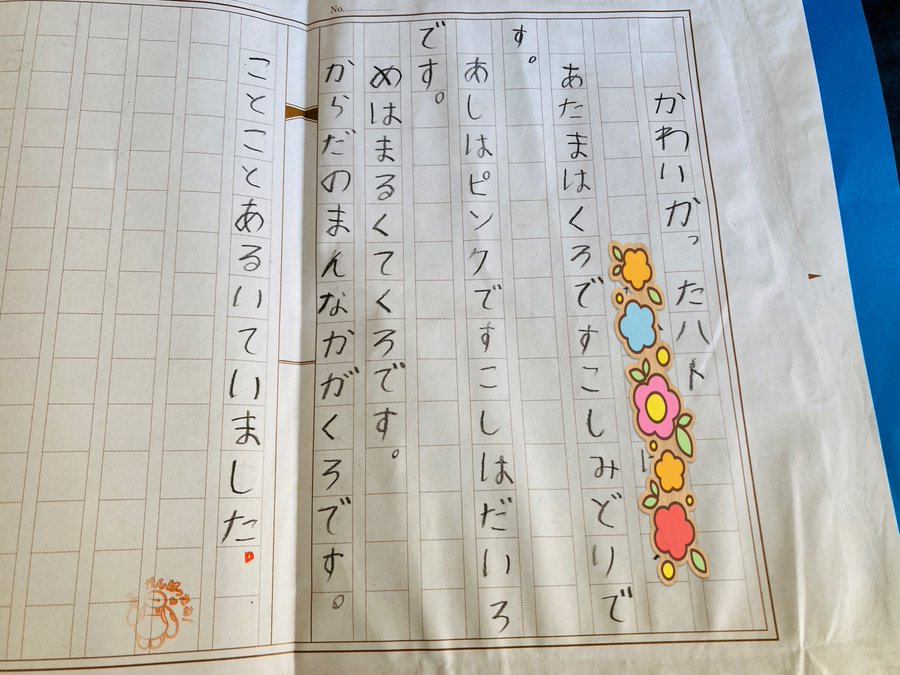 No.
かわいかったハト
あたまはくろですこしみどりで
す。
あしはピンクですこしはだいろ
です。
めはまるくてくろです。
からだのまんなかがくろです。
ことことあるいていました。